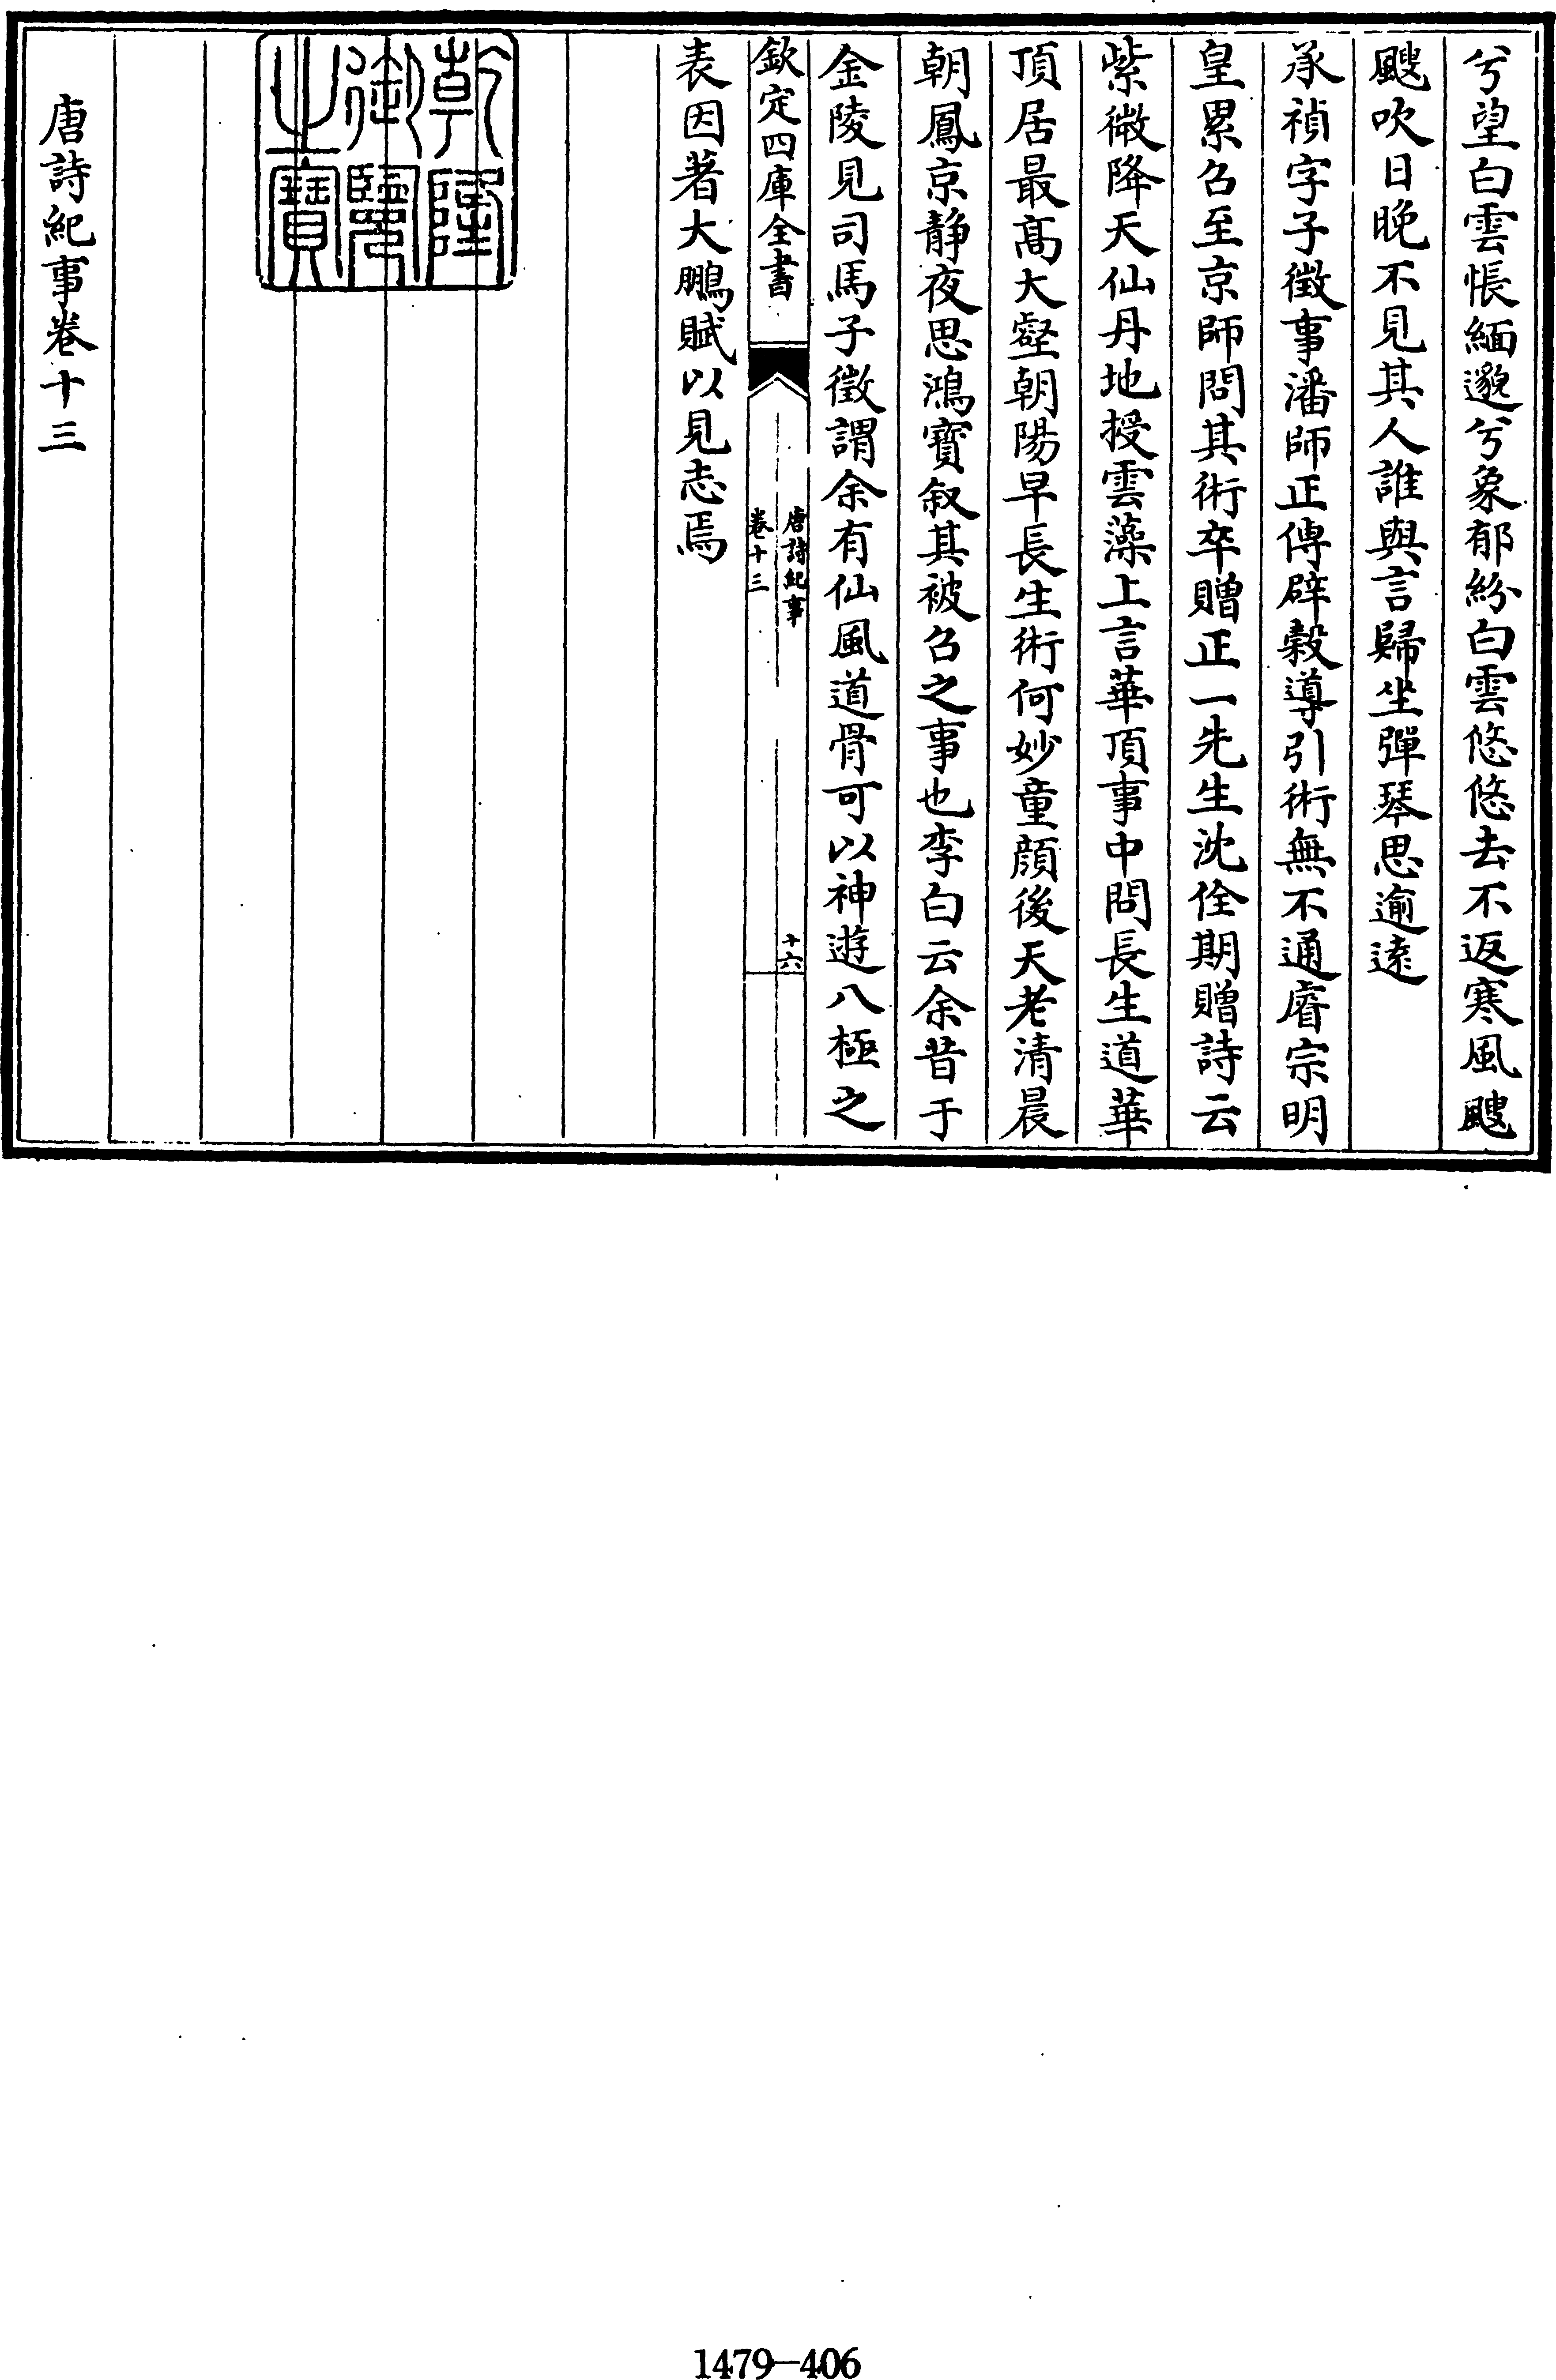 兮望白雲悵緬邈兮象郁紛白雲悠悠去不返寒風颼
颼吹日晚不見其人誰與言歸坐彈琴思逾遠
承禎字子徵事潘師正傳辟榖導引術無不通睿宗明
皇累召至京師問其術卒贈正一先生沈佺期贈詩云
紫微降天仙丹地授雲藻上言華頂事中問長生道華
頂居最髙大壑朝陽早長生術何妙童顔後天老清晨
朝鳳京静夜思鴻寳叙其被召之事也李白云余昔于
金陵見司馬子徵謂余有仙風道骨可以神遊八極之
欽定四庫全書
唐詩紀事
卷十三
十六
表因著大鵬賦以見志焉
乾隆
御覽
之寶
唐詩紀事卷十三
1479-406